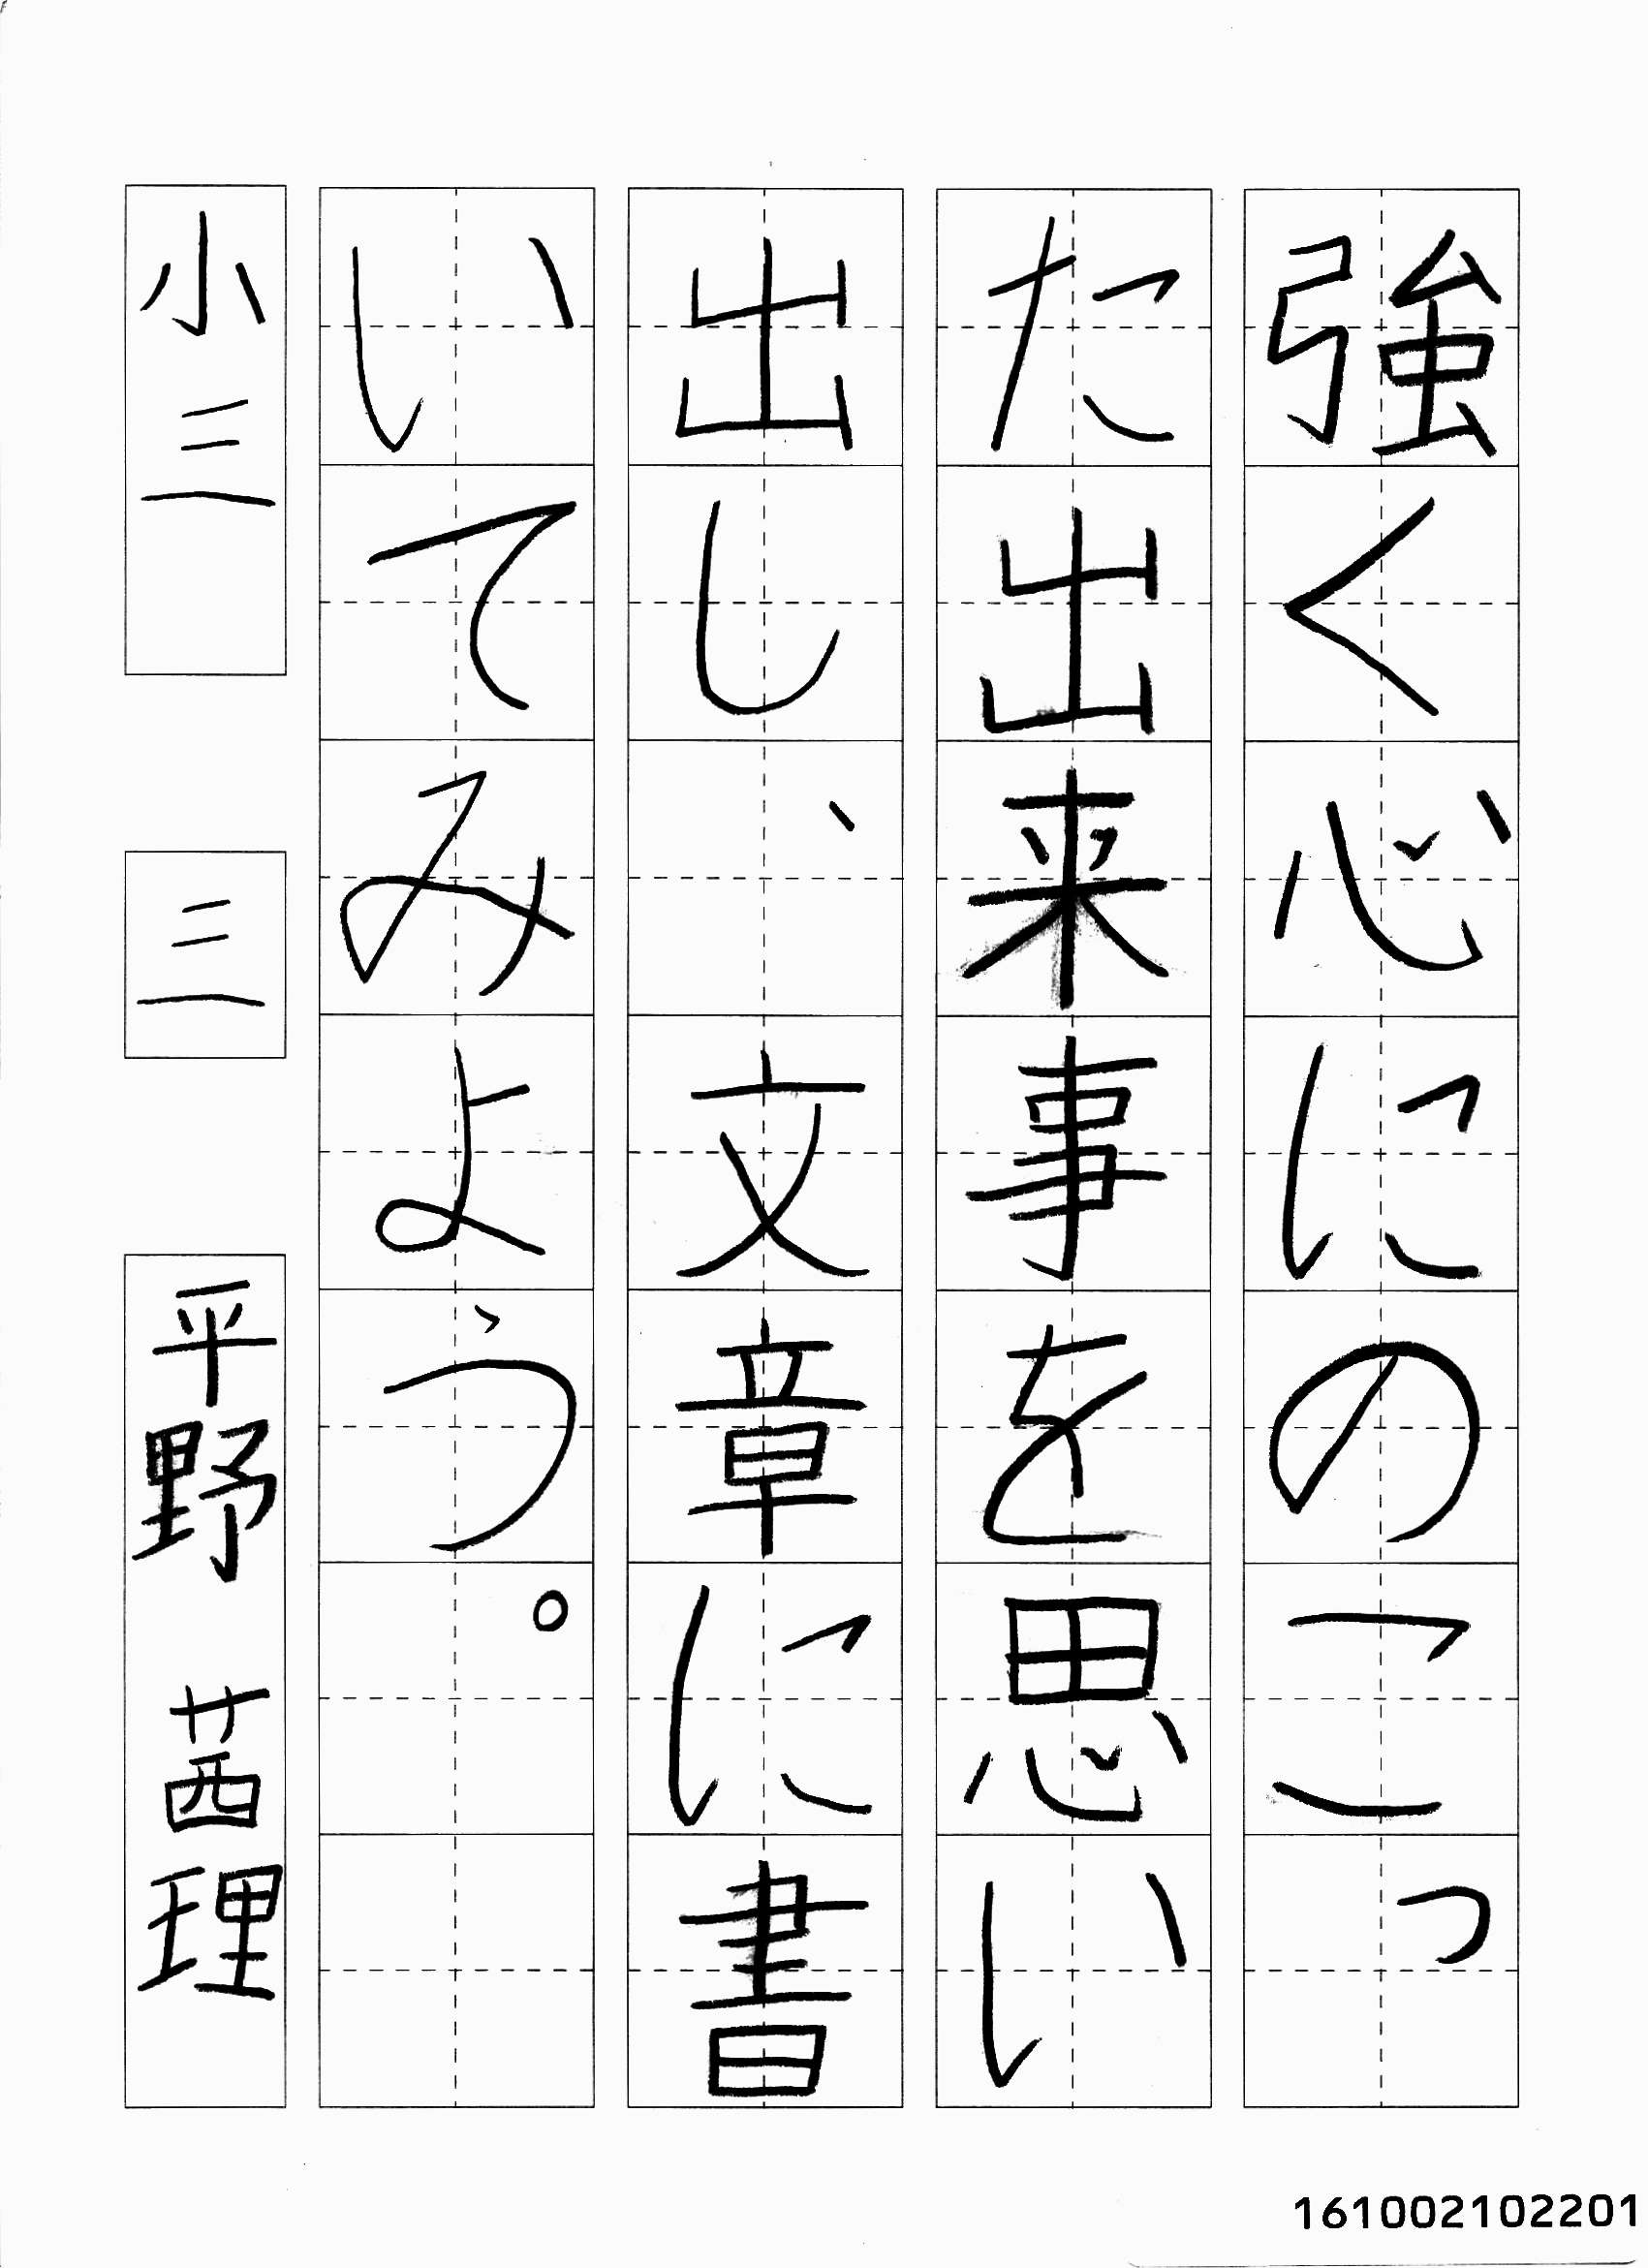 強く心にのこっ
た出来事を思い
出し、文章に書
いてみよう。
小三
三
平野 茜理
161002102201